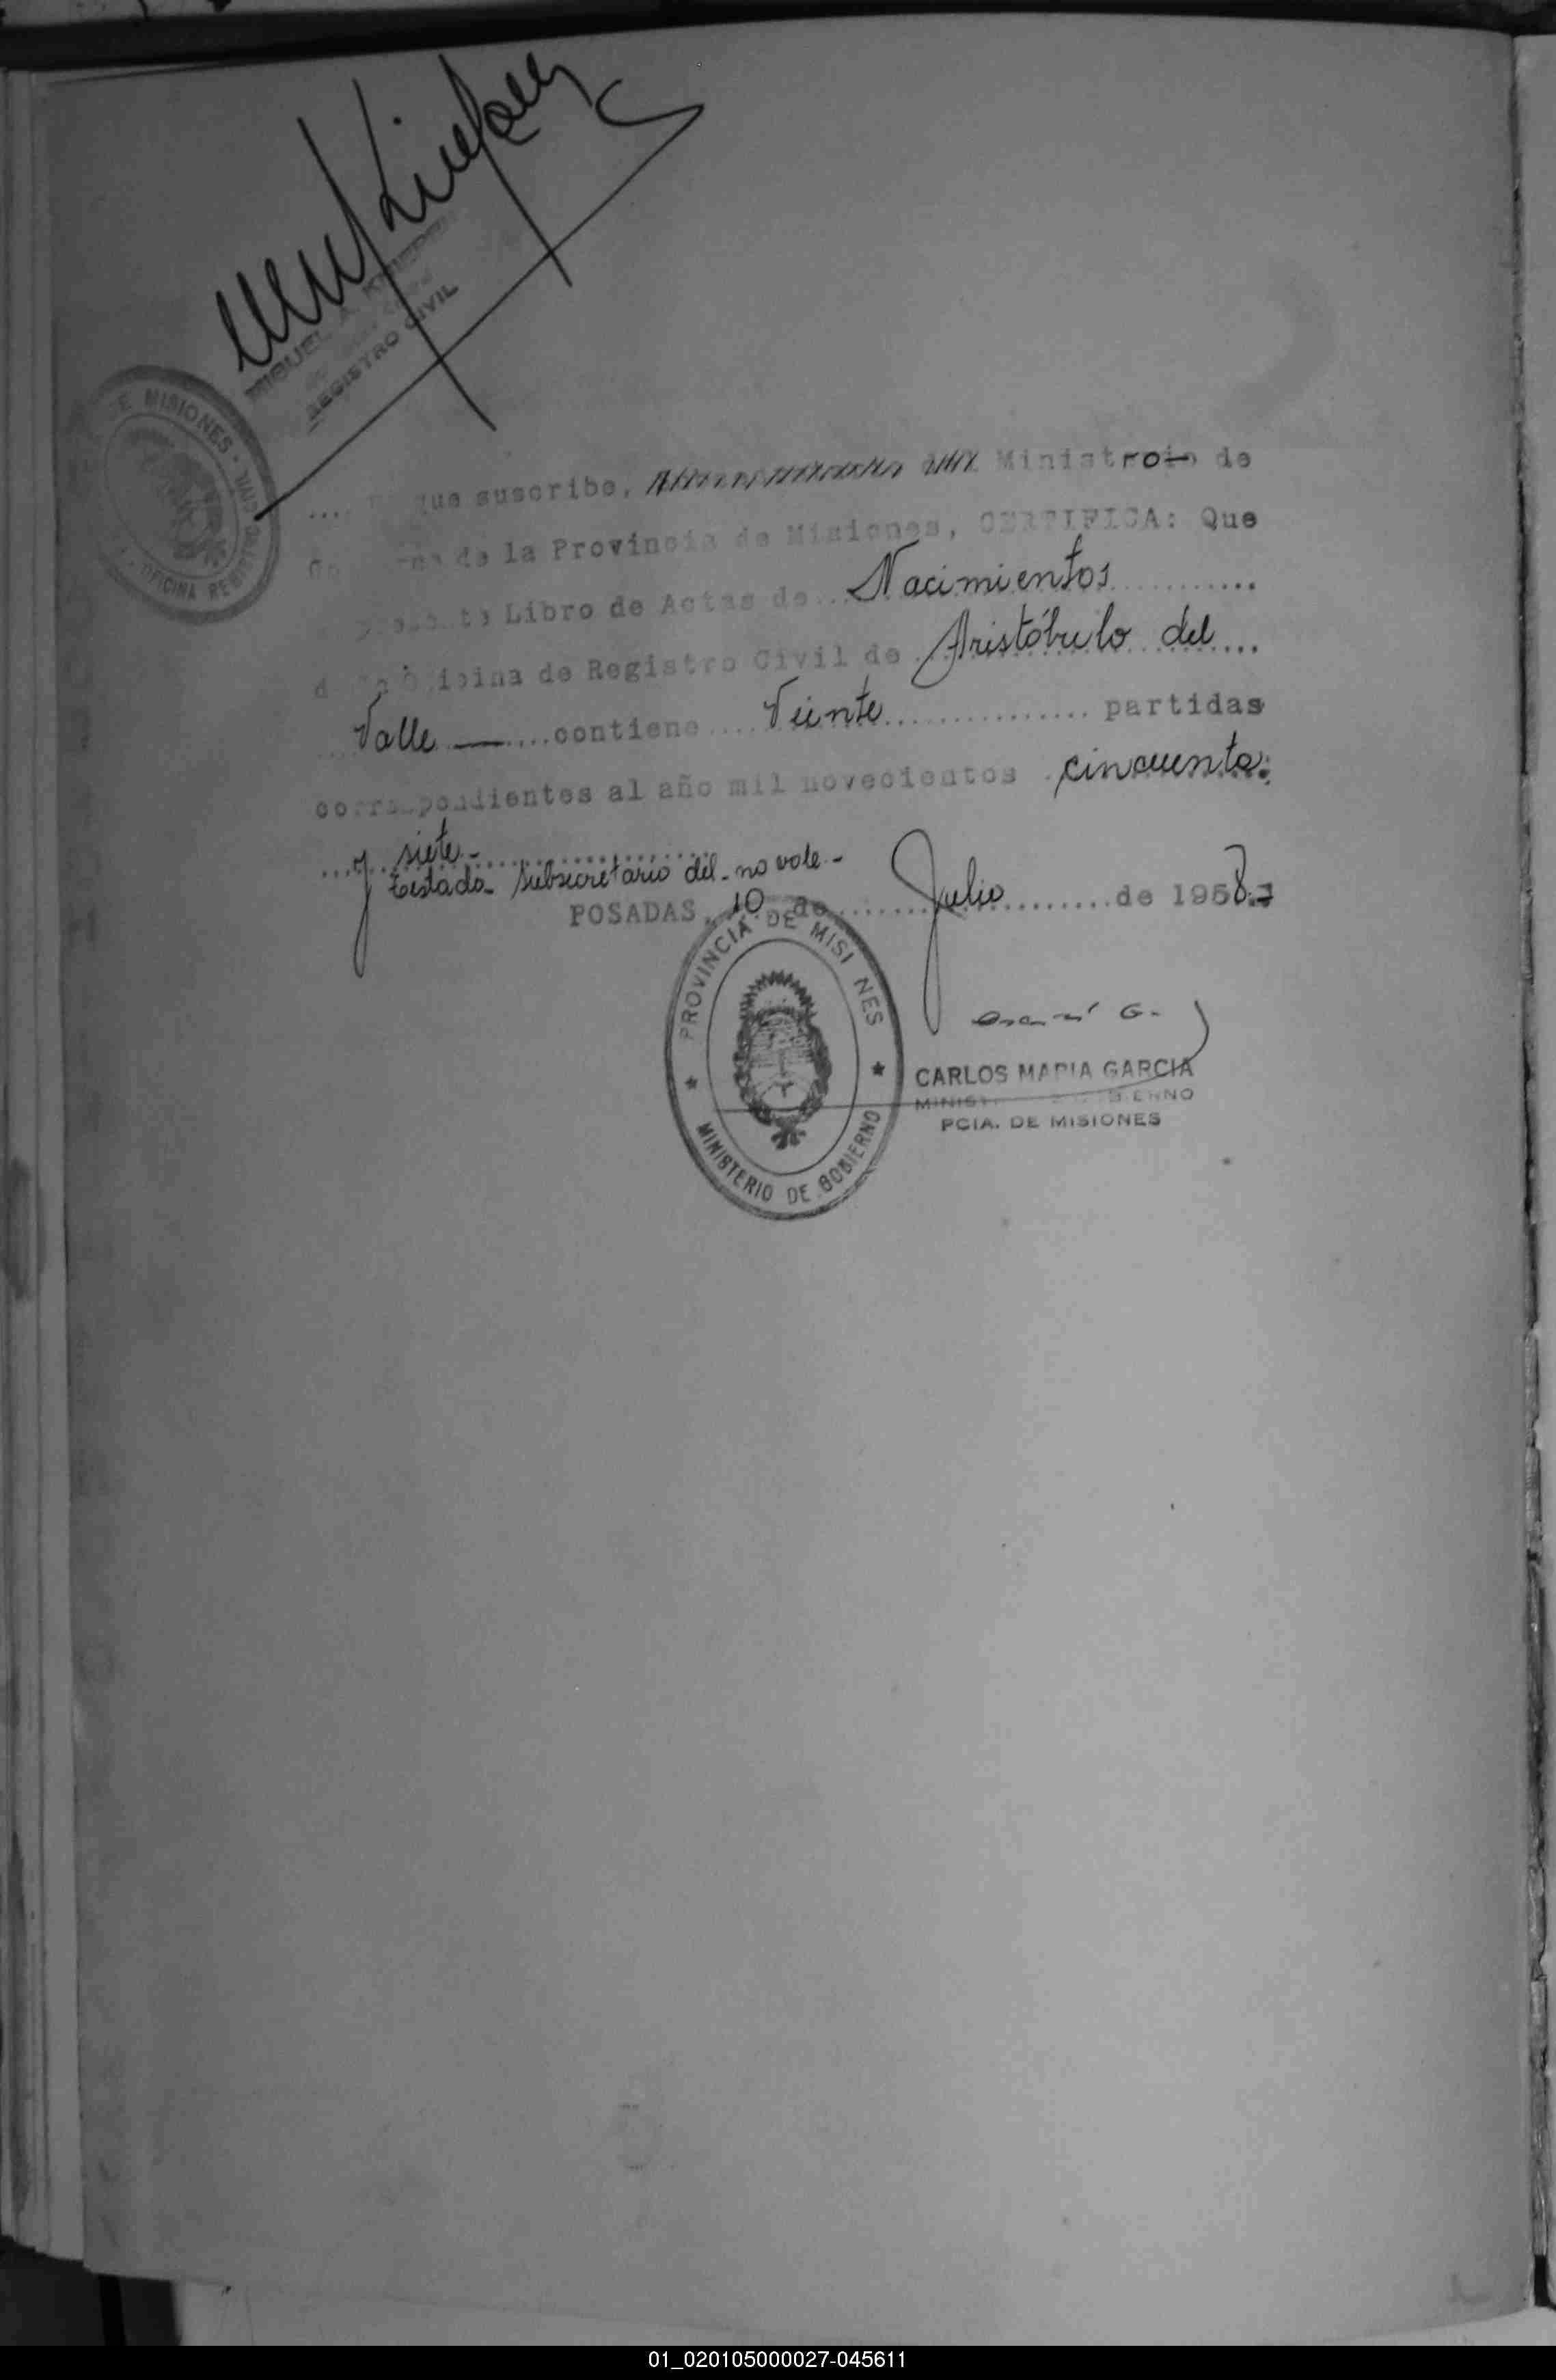 MIGUEL A.
REGISTRO CIVIL
DE MISIONES · OFICINA REGISTRO CIVIL
que suscribe, Ministro de
de la Provincia de Misiones, CERTIFICA: Que
Libro de Actas de Nacimientos
Oficina de Registro Civil de Aristóbulo del
Valle — contiene Veinte partidas
correspondientes al año mil novecientos cincuenta
y siete -
Testado - Subsecretario del - no vale -
POSADAS, 10 de Julio de 1958.-
PROVINCIA DE MISI NES
MINISTERIO DE GOBIERNO
CARLOS MARIA GARCIA
MINISTRO DE GOBIERNO
PCIA. DE MISIONES
01_020105000027-045611